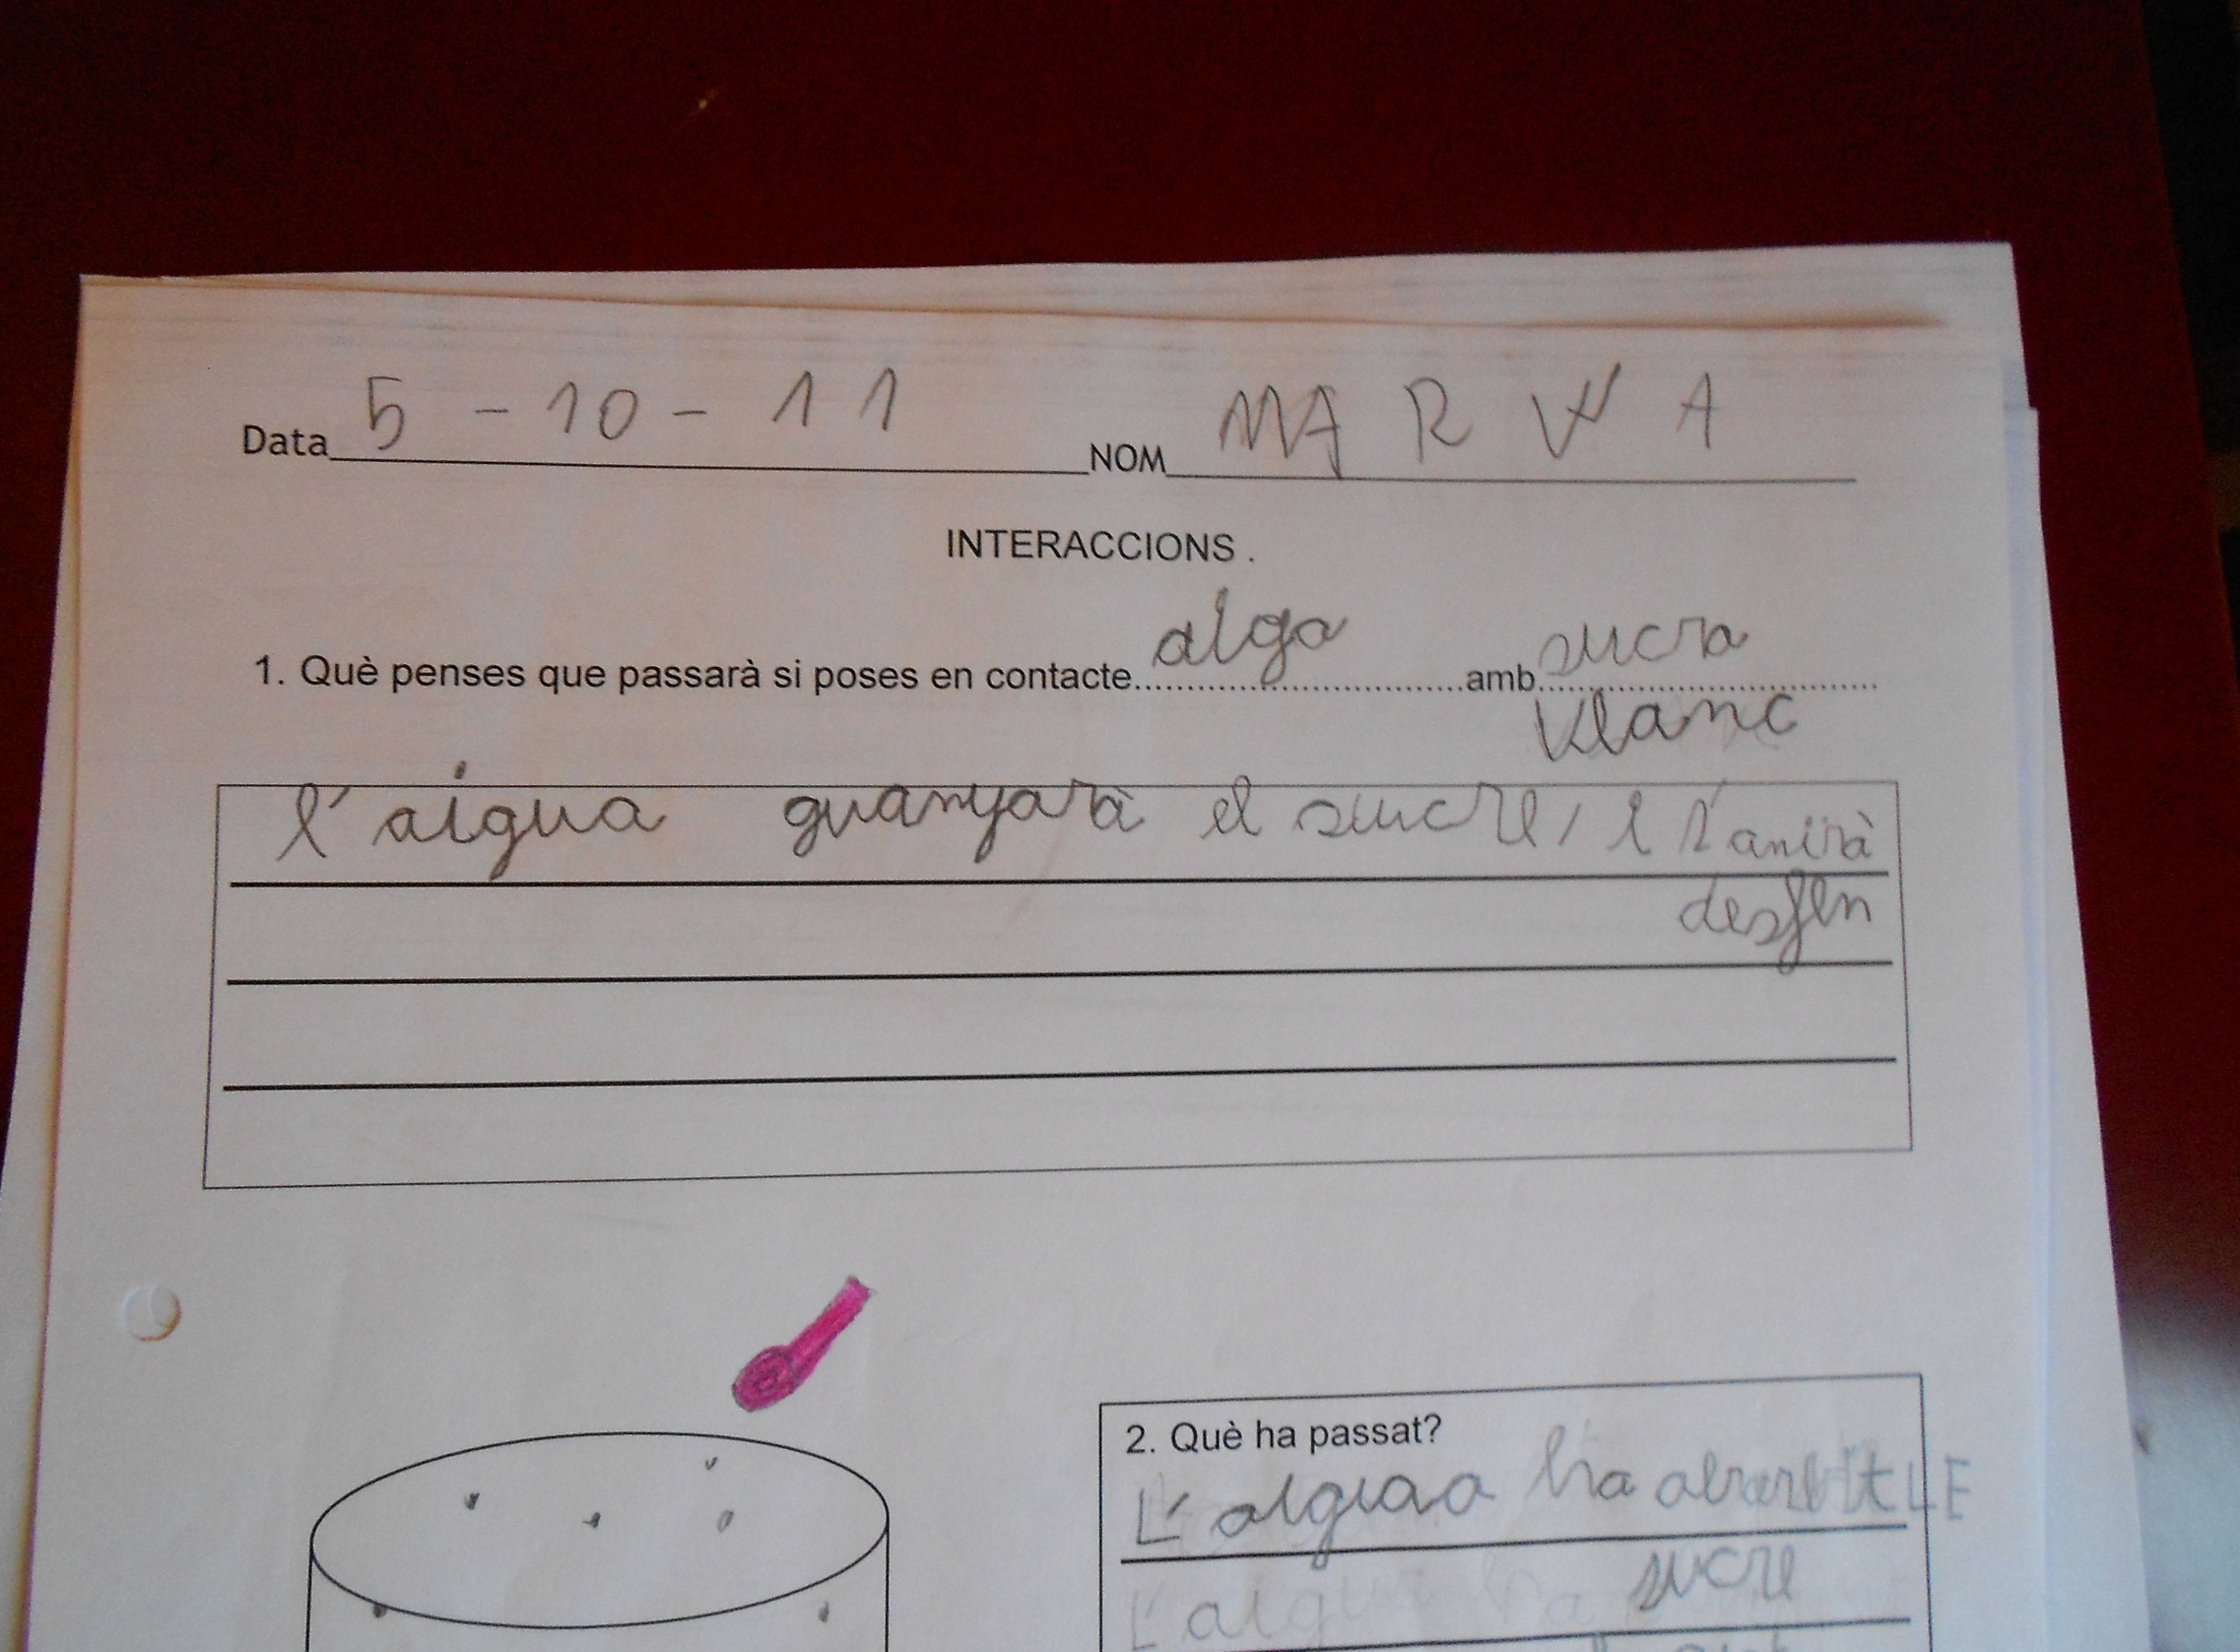 Data 5 - 10 - 11 NOM MARWA
INTERACCIONS .
1. Què penses que passarà si poses en contacte alga amb sucra
Vlanc
l'aigua guanyarà el sucre, i s'anirà
desfen
2. Què ha passat?
L' algua ha LE
sucre
L'aigua ha